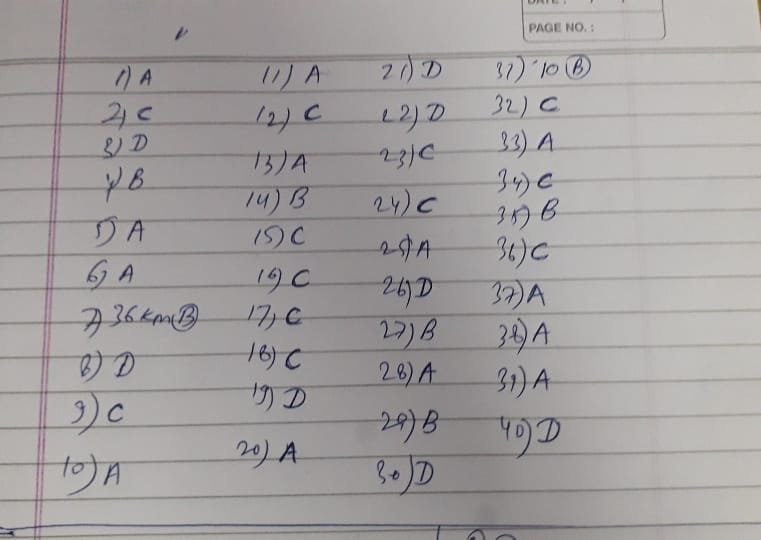 DATE :
PAGE NO. :
1) A
2) C
3) D
4) B
5) A
6) A
7) 36 km (B)
8) D
9) C
10) A
11) A
12) C
13) A
14) B
15) C
16) C
17) C
18) C
19) D
20) A
21) D
22) D
23) C
24) C
25) A
26) D
27) B
28) A
29) B
30) D
31) 10 (B)
32) C
33) A
34) C
35) B
36) C
37) A
38) A
39) A
40) D